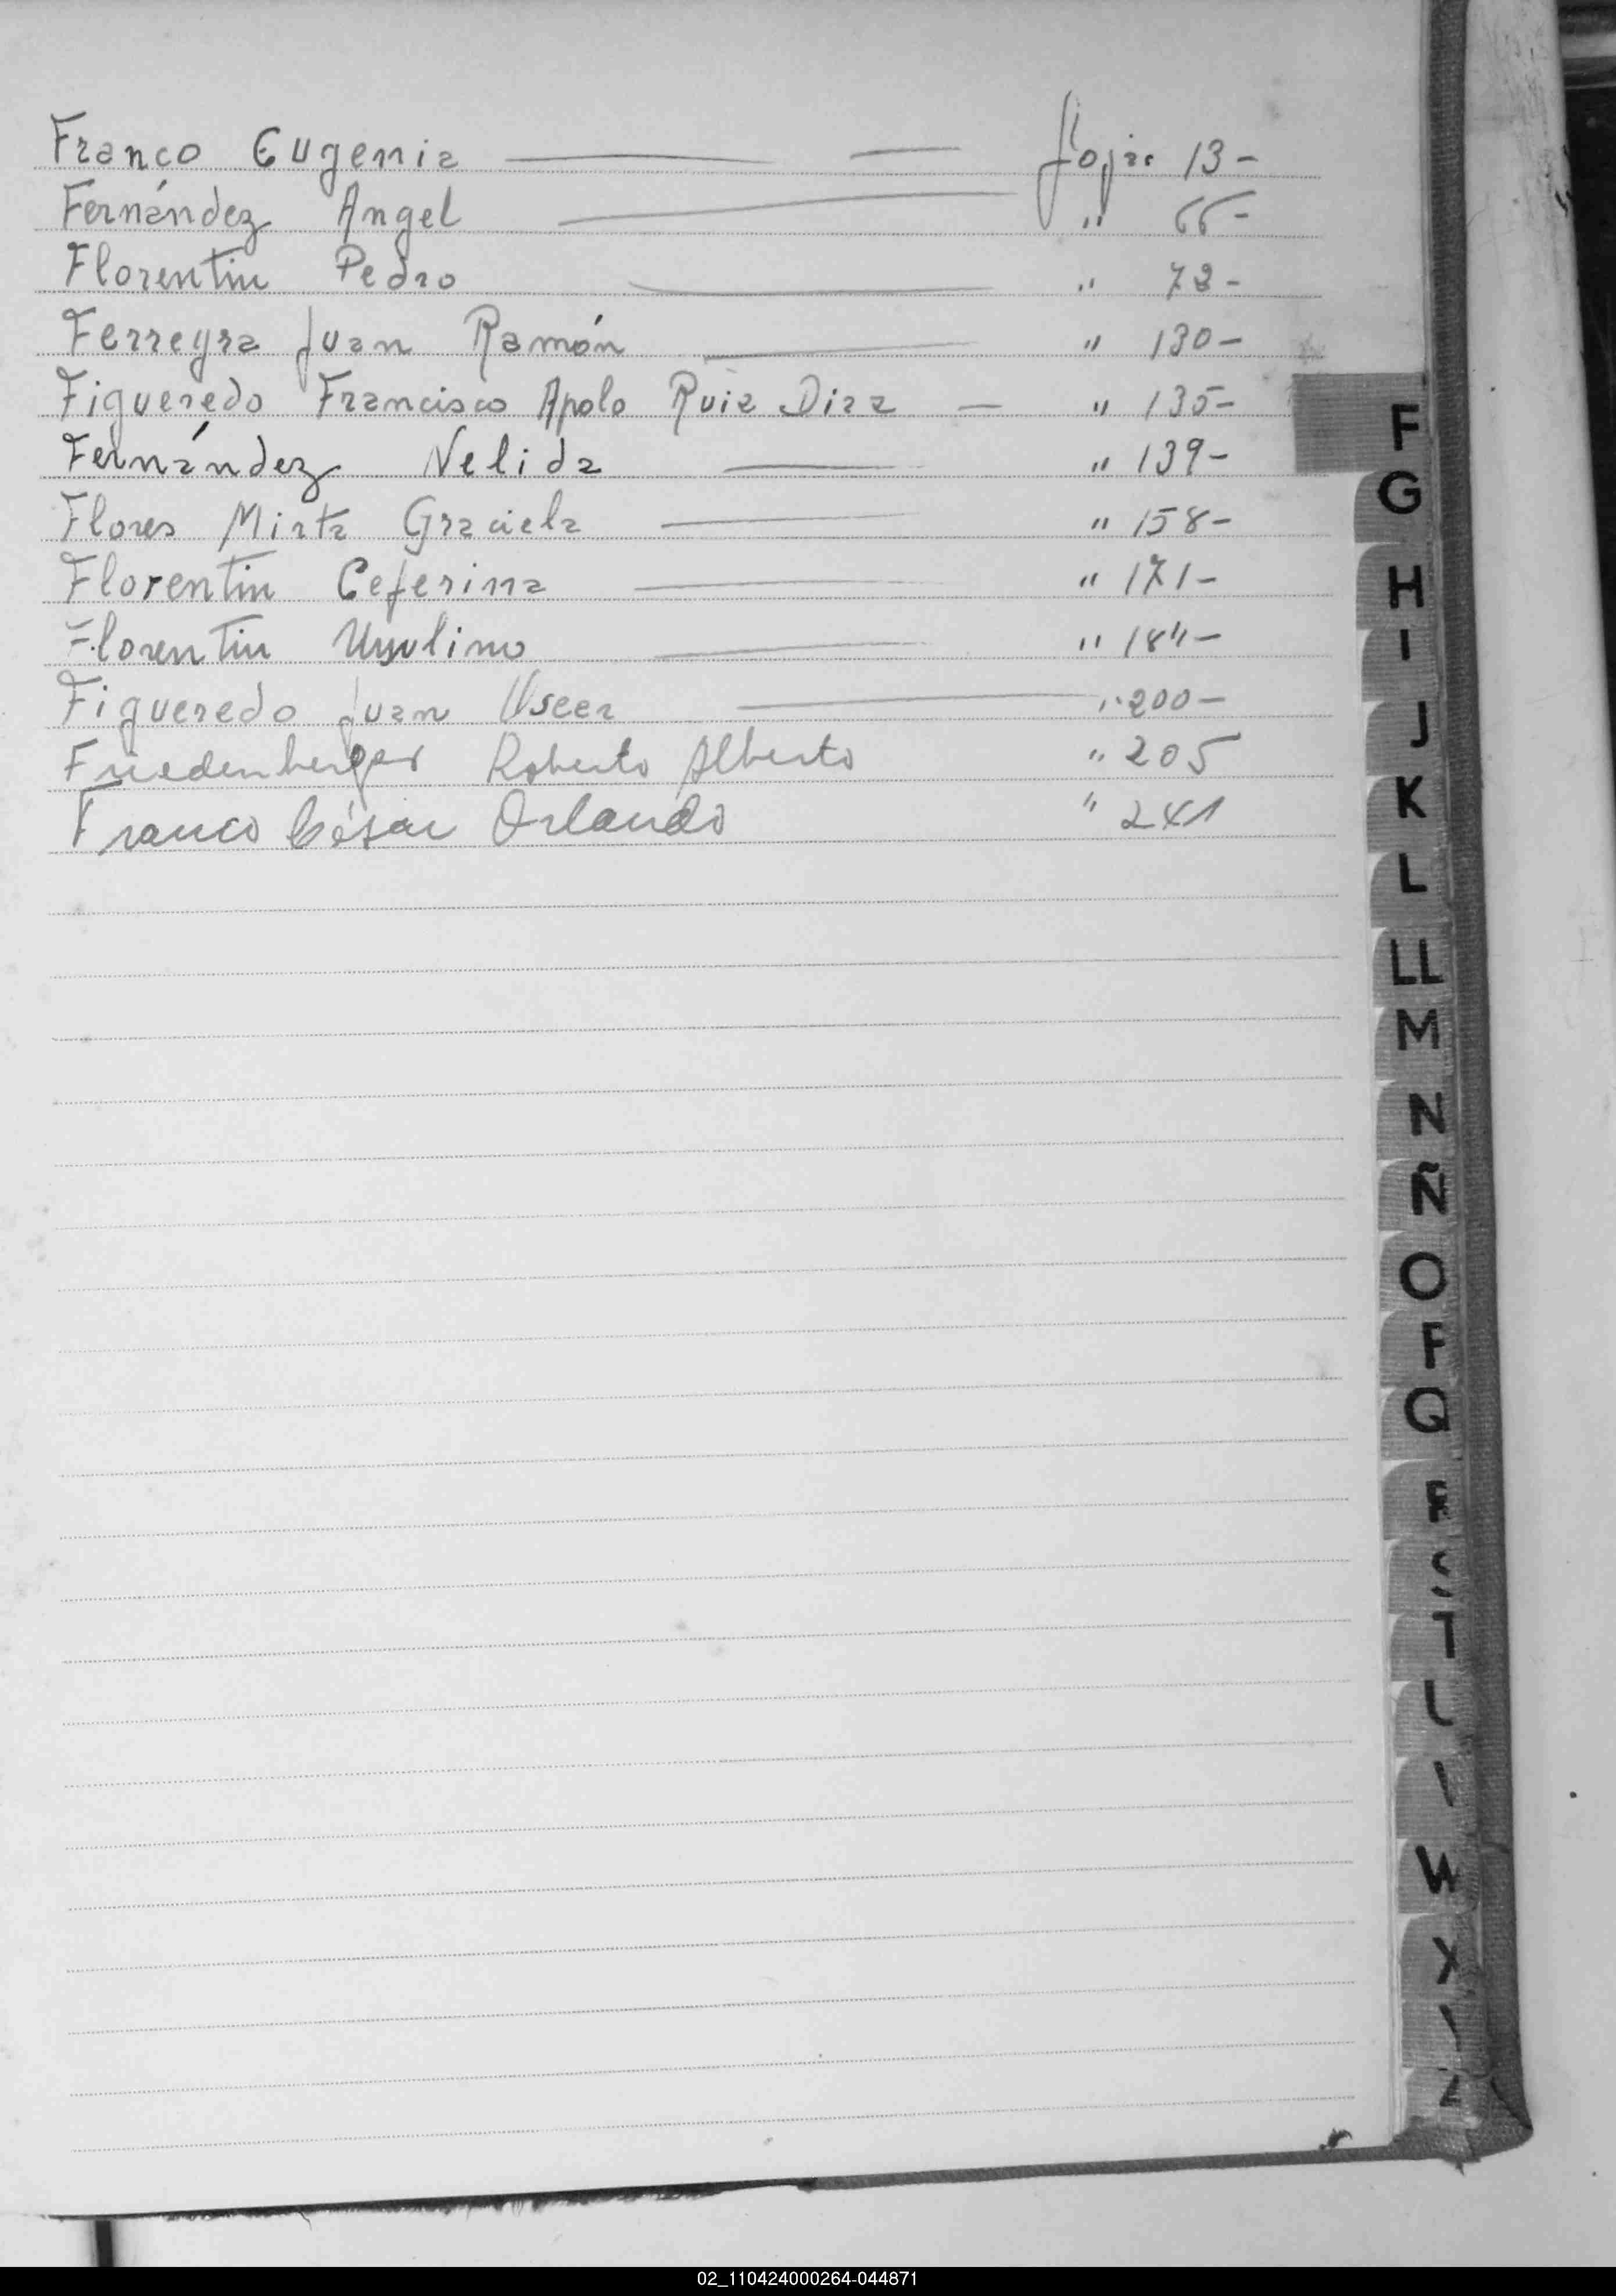 Franco Eugenia — — fojas 13-
Fernández Angel — " 66-
Florentin Pedro — " 78-
Ferreyra Juan Ramón — " 130-
Figueredo Francisco Apolo Ruiz Diaz — " 135-
Fernández Nelida — " 139-
Flores Mirta Graciela — " 158-
Florentin Ceferina — " 171-
Florentin Ursulino — " 184-
Figueredo Juan — " 200-
Friedenberger Roberto Alberto " 205
Franco César Orlando " 241
F
G
H
I
J
K
L
LL
M
N
Ñ
O
Q
T
W
X
Z
02_110424000264-044871